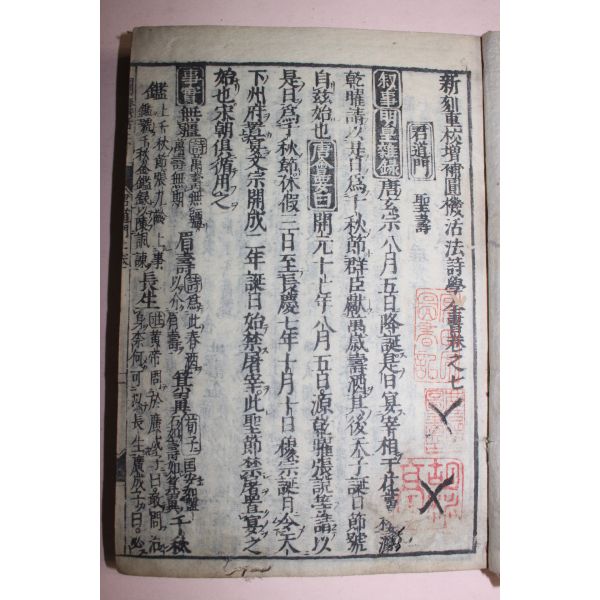 新刻重校增補圓機活法詩學全書卷之七
君道門
聖壽
叙事 明皇雜錄 唐玄宗八月五日降誕是日宴宰相于花萼樓源
乾曜請以是日爲千秋節群臣獻萬歲壽酒其後太子誕日節號
自茲始也 唐會要曰 開元十七年八月五日源乾曜張說等請以
是日爲千秋節休假三日至長慶七年十月十日穆宗誕日令天
下州府置宴文宗開成二年誕日始禁屠宰此聖節禁屠置宴之
始也宋朝俱循用之
事實 無疆 詩萬壽無疆 萬壽無期 眉壽 詩爲此春酒 以介眉壽 箕翼 荀子曰國安如盤 千秋
鑑 上千秋節張九齡上事 鑑號千秋金鑑録以陳諷諫 長生 莊黃帝問於廣成子曰敢問治 身奈何可以長生廣成子曰